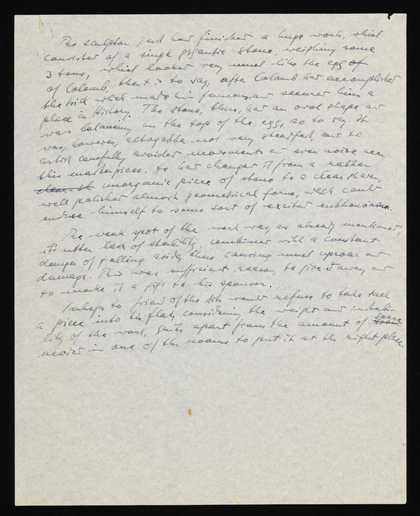 The sculptor just had finished a huge work, which
consisted of a single gigantic stone, weighing some
3 tons, which looked very much like the egg of
of Columb, that is to say, after Columb had accomplished
the trick which made him famous and secured him a
place in History. The stone, thus, had an oval shape and
was balancing on the top of the egg, so to say. It
was, however, not very steadfast and the
artist carefully avoided movements or even noise near
this masterpiece. He had changed it from a rather
inorganic piece of stone to a clear shaven
well polished almost geometrical form, which could
himself to some sort of excited enthusiasm.
The weak spot of the work was as already mentioned
its utter lack of stability, combined with a constant
danger of falling aside, thus causing much uproar and
damage. This was sufficient reason, to give it away and
to make it a gift to his sponsor.
Perhaps no friend of the arts would refuse to take such
a piece into his flat, considering the weight and
of the work, quite apart from the amount of
needed in one of the rooms to put it at the right place